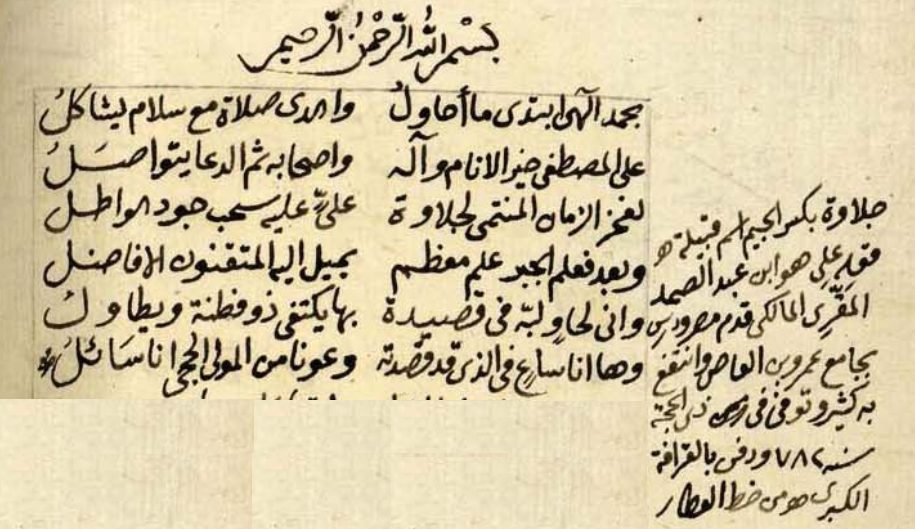 بسم الله الرحمن الرحيم
بحمد الهى ابتدى ما أحاول واهدى صلاة مع سلام يشاكل
على المصطفى خير الانام وآله واصحابه ثم الدعا يتواصل
لفخر الزمان المنتمى لجلاوة علىّ عليه سحب جود هواطل
وبعد فعلم الجبر علم معظم يميل اليه المتقنون الافاضل
وانى لحاو لبّه فى قصيدة بها يكتفى ذو فطنة ويطاول
وها انا ساع فى الذى قد قصدته وعونا من المولى الحجى انا سائل
جلاوة بكسر الجيم اسم قبيلة
فقوله على هو ابن عبد الصمد
المقرى المالكى قدم مصر ودرس
بجامع عمرو بن العاص وانتفع
به كثير وتوفى فى ذى الحجة
سنه ٧٨٢ ودفن بالقرافة
الكبرى